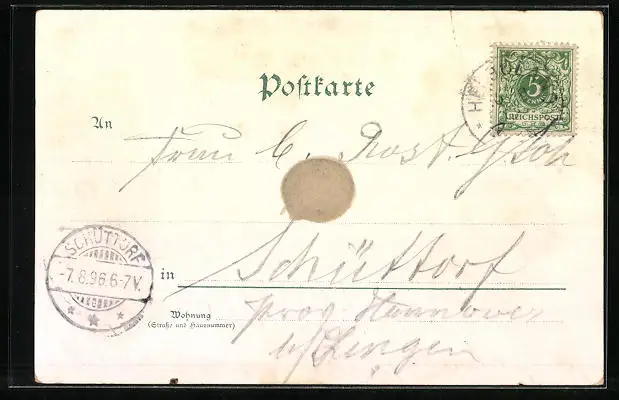 Postkarte
5
REICHSPOST
An
Frau C. Rost
SCHÜTTORF
-7.8.96.6-7V.
in Schüttorf
Wohnung
(Straße und Hausnummer)
prov Hannover
b/Lingen